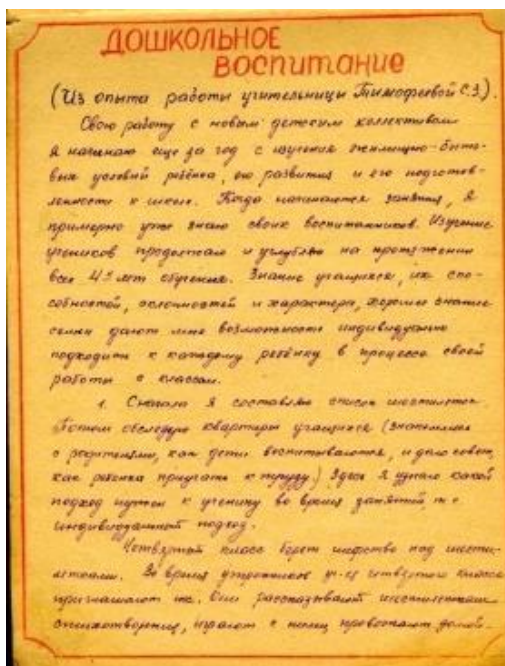 ДОШКОЛЬНОЕ
ВОСПИТАНИЕ
(Из опыта работы учительницы Тимофеевой С.З.).
Свою работу с новым детским коллективом
я начинаю еще за год с изучения жилищно-быто-
вых условий ребёнка, его развития и его подготов-
ленности к школе. Когда начинаются занятия, я
примерно уже знаю своих воспитанников. Изучение
учеников продолжаю и углубляю на протяжении
всех 4х лет обучения. Знание учащихся, их спо-
собностей, склонностей и характера, хорошее знание
семьи дают мне возможность индивидуально
подходить к каждому ребёнку в процессе своей
работы с классом.
1. Сначала я составляю список шестилеток.
Потом обследую квартиры учащихся (знакомлюсь
с родителями, как дети воспитываются, и даю совет,
как ребенка приучать к труду.) Здесь я узнаю какой
подход нужен к ученику во время занятий т.е
индивидуальный подход.
Четвертый класс берет шефство над шести-
летками. Во время утренников уч-ся четвертого класса
приглашают их. Они рассказывают шестилеткам
стихотворения, играют с ними провожают домой.